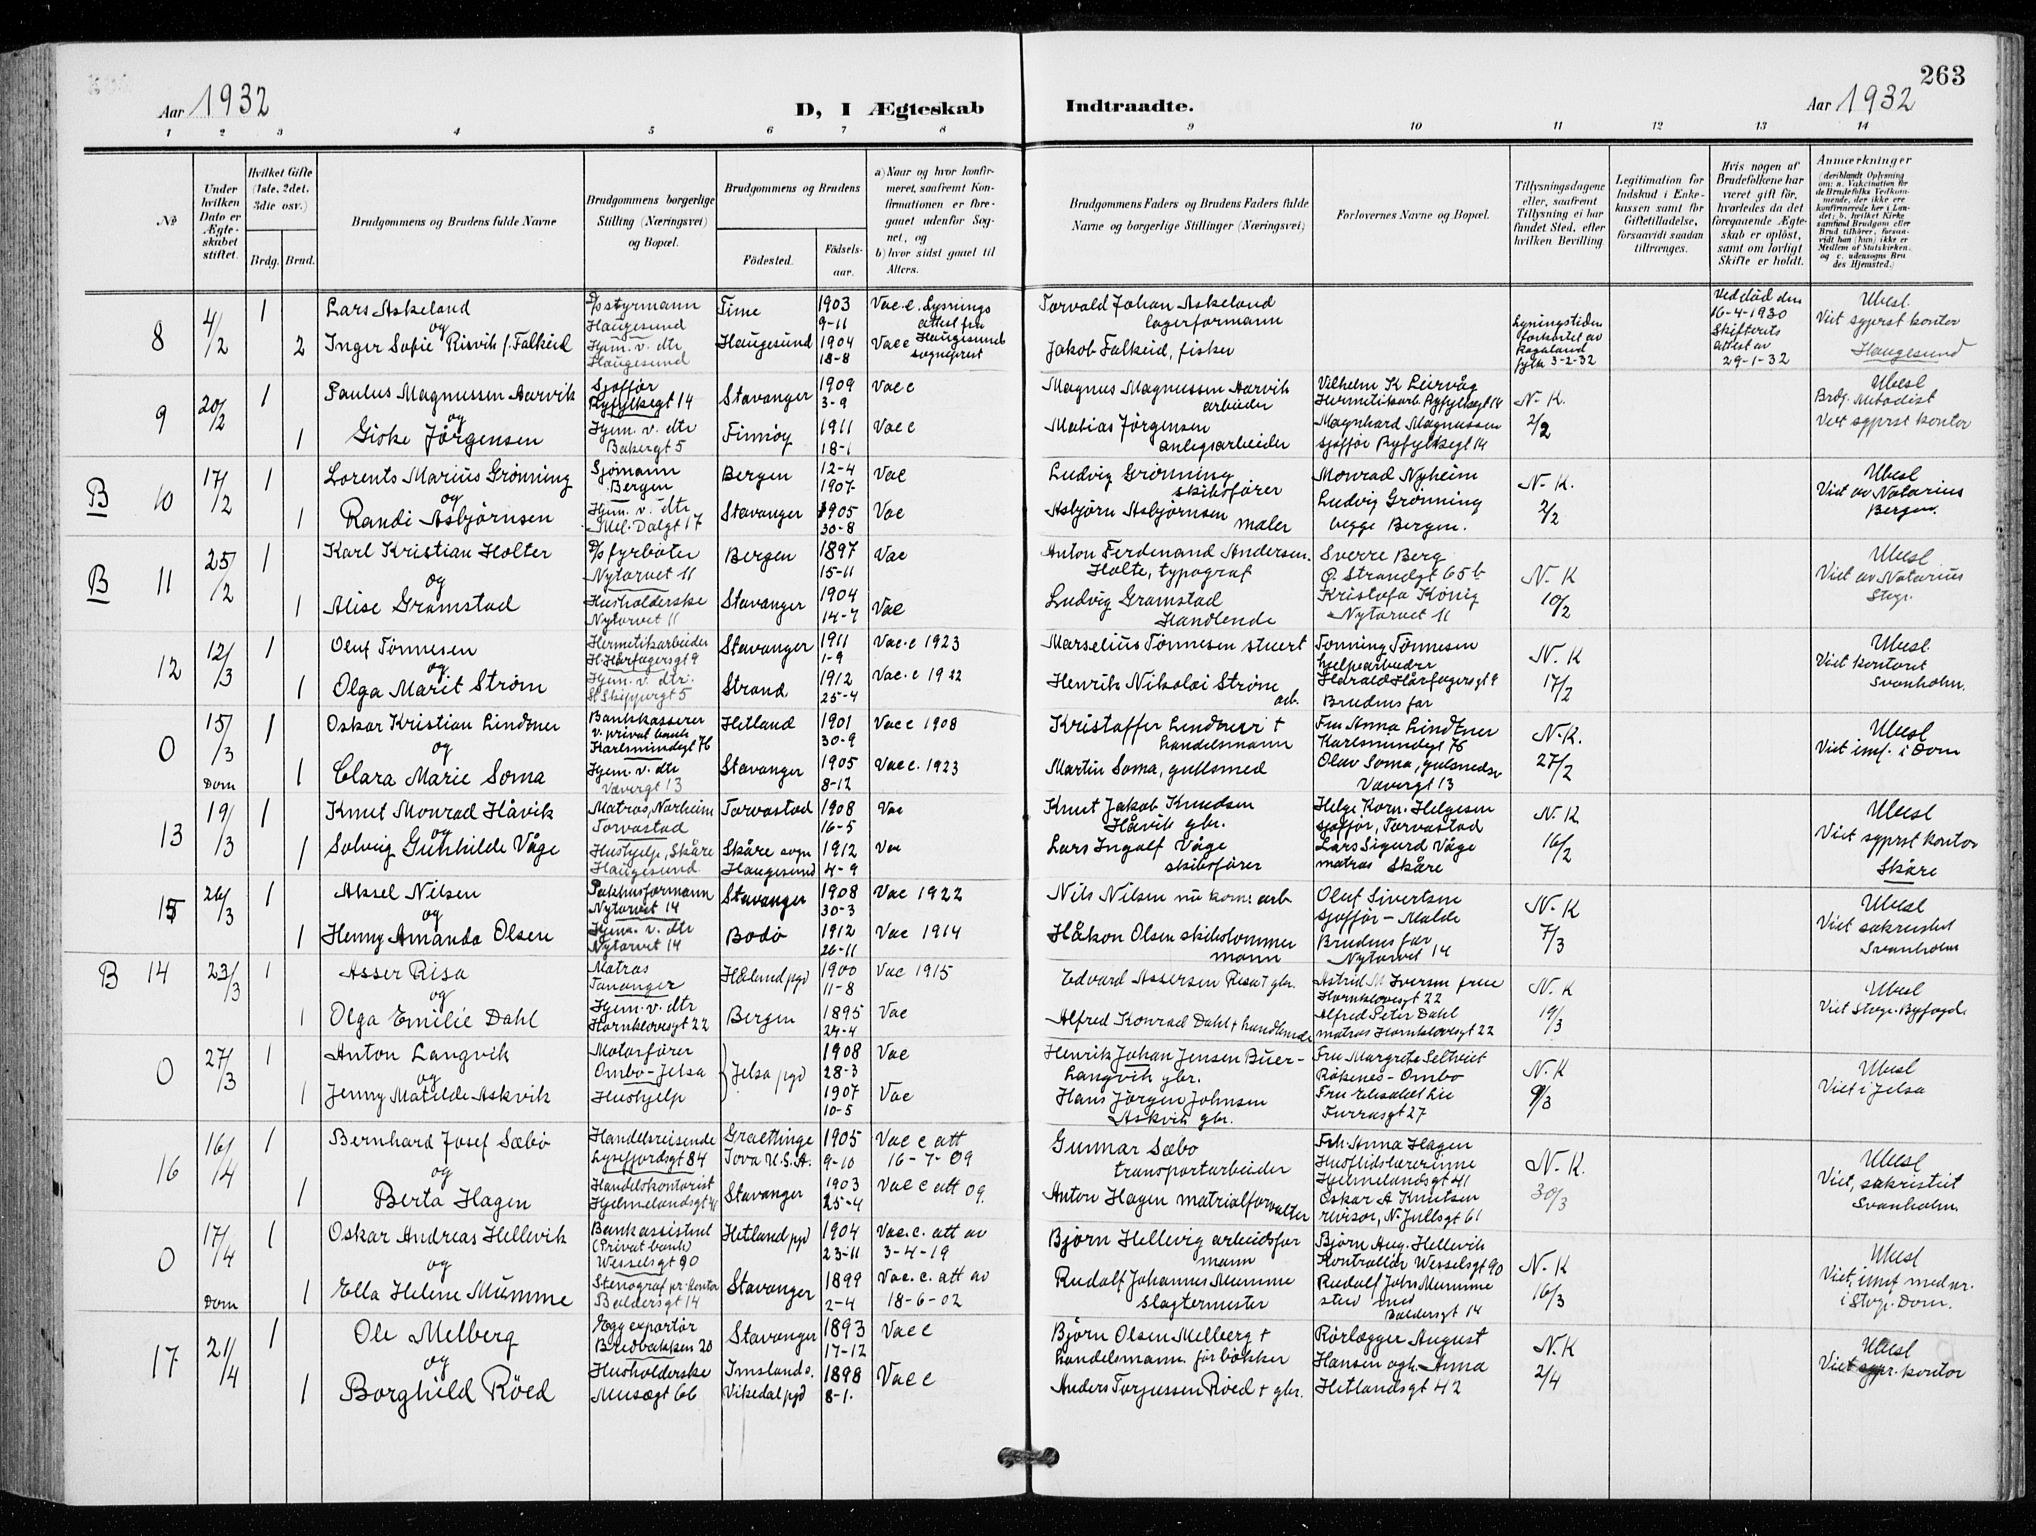 263
Aar 1932
D, I Ægteskab
Indtraadte.
Aar 1932
1 2 3 4 5 6 7 8 9 10 11 12 13 14
№
Under hvilken Dato er Ægteskabet stiftet.
Hvilket Gifte (1ste, 2det, 3die osv.)
Brdg. Brud.
Brudgommens og Brudens fulde Navne
Brudgommens borgerlige Stilling (Næringsvei) og Bopæl.
Brudgommens og Brudens
Födested.
Födselsaar.
a) Naar og hvor konfirmeret, saafremt Konfirmationen er foregaaet udenfor Sognet, og
b) hvor sidst gaaet til Alters.
Brudgommens Faders og Brudens Faders fulde Navne og borgerlige Stillinger (Næringsvei)
Forlovernes Navne og Bopæl.
Tillysningsdagene eller, saafremt Tillysning ei har fundet Sted, efter hvilken Bevilling.
Legitimation for Indskud i Enkekassen samt for Giftetilladelse, forsaavidt saadan tiltrænges.
Hvis nogen af Brudefolkene har været gift før, hvorledes da det foregaaende Ægteskab er oplöst, samt om lovligt Skifte er holdt.
Anmærkninger
(deriblandt Oplysning om: a. Vakcination for de Brudefolks Vedkommende, der ikke ere konfirmerede her i Landet; b. hvilket Kirkesamfund Brudgom eller Brud tilhörer, forsaavidt han (hun) ikke er Medlem af Statskirken, og c. udensogns Brudes Hjemsted.)
8 4/2 1 Lars Askeland
og
2 Inger Sofie Risvik f. Falkeid
D/s styrmann
Haugesund
Hjem. v. dtr
Haugesund
Time 1903
9-11
Haugesund 1904
18-8
Vac. c. Lysnings
attest fra
Vac c Haugesund
sogneprest
Torvald Johan Askeland
lagerformann
Jakob Falkeid, fisker
Lysningstiden
forkortet av
Rogaland
fylk 3-2-32
Ved död den
16-4-1930
Skifterets
attest av
29-1-32
Ubesl.
Viet sgprst kontor
Haugesund
9 20/2 1 Paulus Magnussen Aarvik
og
1 Giske Jørgensen
Sjaffør
Ryfylkegt 14
Hjem. v. dtr
Bakergt 5
Stavanger 1909
3-9
Finnöy 1911
18-1
Vac c
Vac c
Magnus Magnussen Aarvik
arbeider
Matias Jørgensen
anlegsarbeider
Vilhelm K Leirvåg
Hermetikarb. Ryfylkegt 14
Magnhard Magnussen
sjaffør Ryfylkegt 14
N. K.
2/2
Ubesl
Brdg. Metodist
Viet sgprst kontor
B 10 17/2 1 Lorents Marius Grønning
og
1 Randi Asbjørnsen
Sjømann
Bergen
Hjem. v. dtr
Mel. Dalgt 17
Bergen 12-4
1907
Stavanger 1905
30-8
Vac
Vac
Ludvig Grønning
skibsfører
Asbjørn Asbjørnsen
maler
Monrad Nyheim
Ludvig Grønning
begge Bergen.
N. K.
2/2
Ubesl
Viet av Notarius
Bergen.
B 11 25/2 1 Karl Kristian Holter
og
1 Alise Gramstad
D/s fyrbøter
Nytorvet 11
Husholderske
Nytorvet 11
Bergen 1897
15-11
Stavanger 1904
14-7
Vac
Vac
Anton Ferdinand Andersen
Holte, typograf
Ludvig Gramstad
Handlende
Sverre Berg
Ø. Strandgt 65 b
Kristofa König
Nytorvet 11
N. K
10/2
Ubesl
Viet av Notarius
Stvgr.
12 12/3 1 Oluf Tönnesen
og
1 Olga Marit Strøm
Hermetikarbeider
H. Hårfagersgt 9
Hjem. v. dtr.
St. Skippergt 5
Stavanger 1911
1-9
Strand 1912
25-4
Vac. c 1923
Vac. c 1922
Marselius Tönnesen stuert
Henrik Nikolai Strøm
arb.
Tönning Tønnesen
hjelpearbeider
Harald Hårfagersgt 9
Brudens far
N. K
17/2
Ubesl
Viet kontoret
Svanholm.
O 15/3 1 Oskar Kristian Lindtner
og
Dom 1 Clara Marie Soma
Bankkasserer
v. privat bank
Karlsmindegt 76
Hjem. v. dtr
Vævergt 13
Hetland 1901
30-9
Stavanger 1905
8-12
Vac c 1908
Vac c. 1923
Kristoffer Lindtner †
handelsmann
Martin Soma, gullsmed
Fru Anna Lindtner
Karlsmindegt 76
Olav Soma, gulsmedsv
Vævergt 13
N. K.
27/2
Ubesl
Viet imf. i Dom
13 19/3 1 Knut Monrad Håvik
og
1 Solveig Gunhilde Våge
Matros, Norheim
Torvastad
Hushjelp, Skåre
Haugesund
Torvastad 1908
16-5
Skåre sogn
Haugesund 1912
4-9
Vac
Vac
Knut Jakob Knudsen
Håvik gbr.
Lars Ingolf Våge
skibsfører
Helge Korn. Helgesen
sjaffør, Torvastad
Lars Sigurd Våge
matros Skåre
N. K
16/2
Ubesl
Viet sgprst kontor
Skåre
15 26/3 1 Aksel Nilsen
og
1 Henny Amanda Olsen
Pakkhusformann
Nytorvet 14
Hjem. v. dtr
Nytorvet 14
Stavanger 1908
30-3
Bodö 1912
26-11
Vac 1922
Vac 1914
Nils Nilsen nu kom. arb
Håkon Olsen skibstømmermann
Oluf Sivertsen
sjaffør - Malde
Brudens far
Nytorvet 14
N. K
7/3
Ubesl
Viet sakristiet
Svanholm
B 14 23/3 1 Asser Risa
og
1 Olga Emilie Dahl
Matros
Tananger
Hjem. v. dtr
Hornklovesgt 22
Håland pgd 1900
11-8
Bergen 1895
24-4
Vac 1915
Vac
Edvard Assersen Risa † gbr.
Alfred Konrad Dahl † handlende
Astrid M Iversen frue
Hornklovesgt 22
Alfred Peter Dahl
matros Hornklovesgt 22
N. K
19/3
Ubesl
Viet Stvgr. Byfogd.
O 27/3 1 Anton Langvik
og
1 Jenny Matilde Askvik
Motorfører
Ombo-Jelsa
Hushjelp
Jelsa pgd 1908
28-3
1907
10-5
Vac
Vac
Henrik Johan Jensen Buer-
Langvik gbr.
Hans Jørgen Johnsen
Askvik gbr.
Fru Margrete Seltveit
Røkenes-Ombo
Fru Elisabet Lie
Furrasgt 27
N. K
9/3
Ubesl
Viet i Jelsa
16 16/4 1 Bernhard Josef Sæbö
og
1 Berta Hagen
Handelsreisende
Lysefjordsgt 84
Handelskontorist
Hjelmelandsgt 41
Graettinge
Iova U.S.A. 1905
9-10
Stavanger 1903
25-4
Vac c att
16-7-09
Vac c att 09.
Gunnar Sæbo
transportarbeider
Anton Hagen matrialforvalter
Frk. Anna Hagen
Husflidslærerinne
Hjelmelandsgt 41
Oskar A Knutsen
revisor, N. Julsgt 61
N. K.
30/3
Ubesl
Viet, sakristiet
Svanholm.
O 17/4 1 Oskar Andreas Hellevik
og
Dom 1 Ella Helene Mumme
Bankassistent
(Privat bank)
Wesselsgt 90
Stenograf pr. kontor
Baldersgt 14
Hetland pgd 1904
23-11
Stavanger 1899
2-4
Vac. c. att av
3-4-19
Vac. c. att av
18-6-02
Björn Hellevig arbeidsformann
Rudolf Johannes Mumme
slagtermester
Björn Aug. Hellevik
Kontrollør Wesselsgt 90
Rudolf Johs Mumme
stud med
Baldersgt 14
N. K
16/3
Ubesl
Viet, imf
i Stvgr. Dom.
17 21/4 1 Ole Melberg
og
1 Borghild Röed
Eggexportør
Bredbakken 20
Husholderske
Musægt 66
Stavanger 1893
17-12
Imslands.
Vikedal pgd 1898
8-1.
Vac c
Vac c
Björn Olsen Melberg †
handelsmann. før bøkker
Anders Torjussen Röed † gbr.
Rørlægger August
Hansen ogh. Anna
Hetlandsgt 42
N. K
2/4
Ubesl
Viet sgpr. kontor